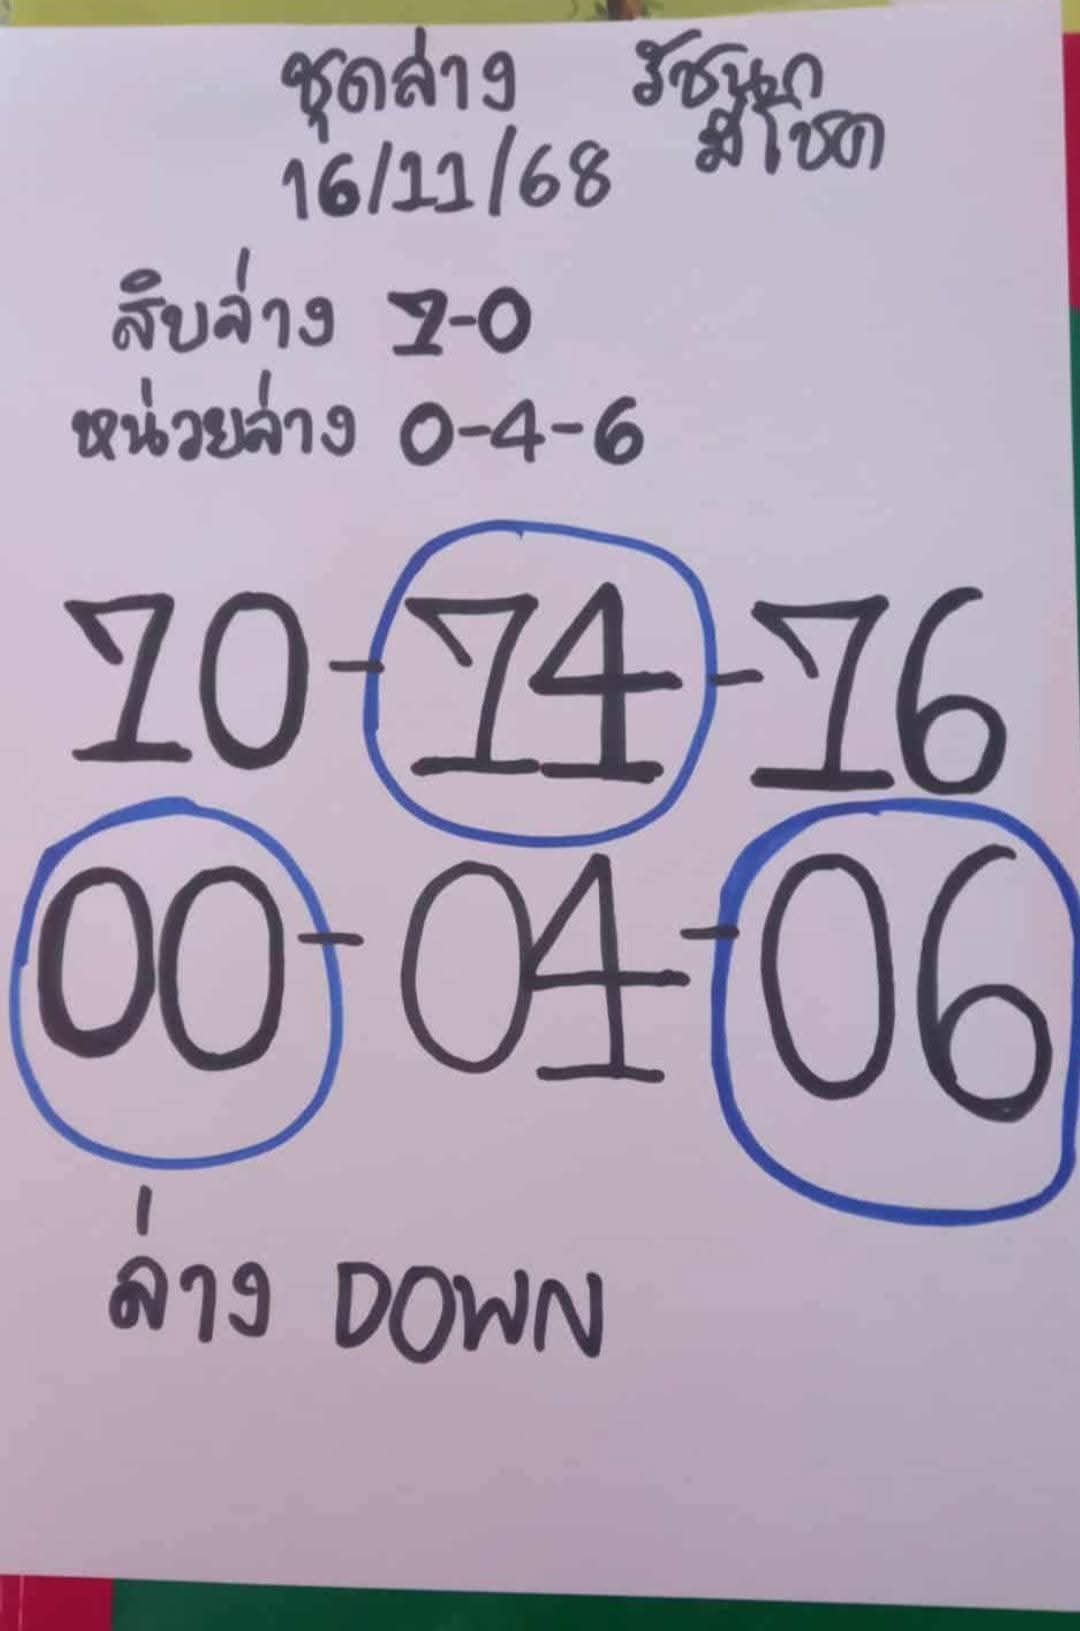 ชุดล่าง รัชนก
มีโชค
16/11/68
สิบล่าง 7-0
หน่วยล่าง 0-4-6
70-74-76
00-04-06
ล่าง DOWN